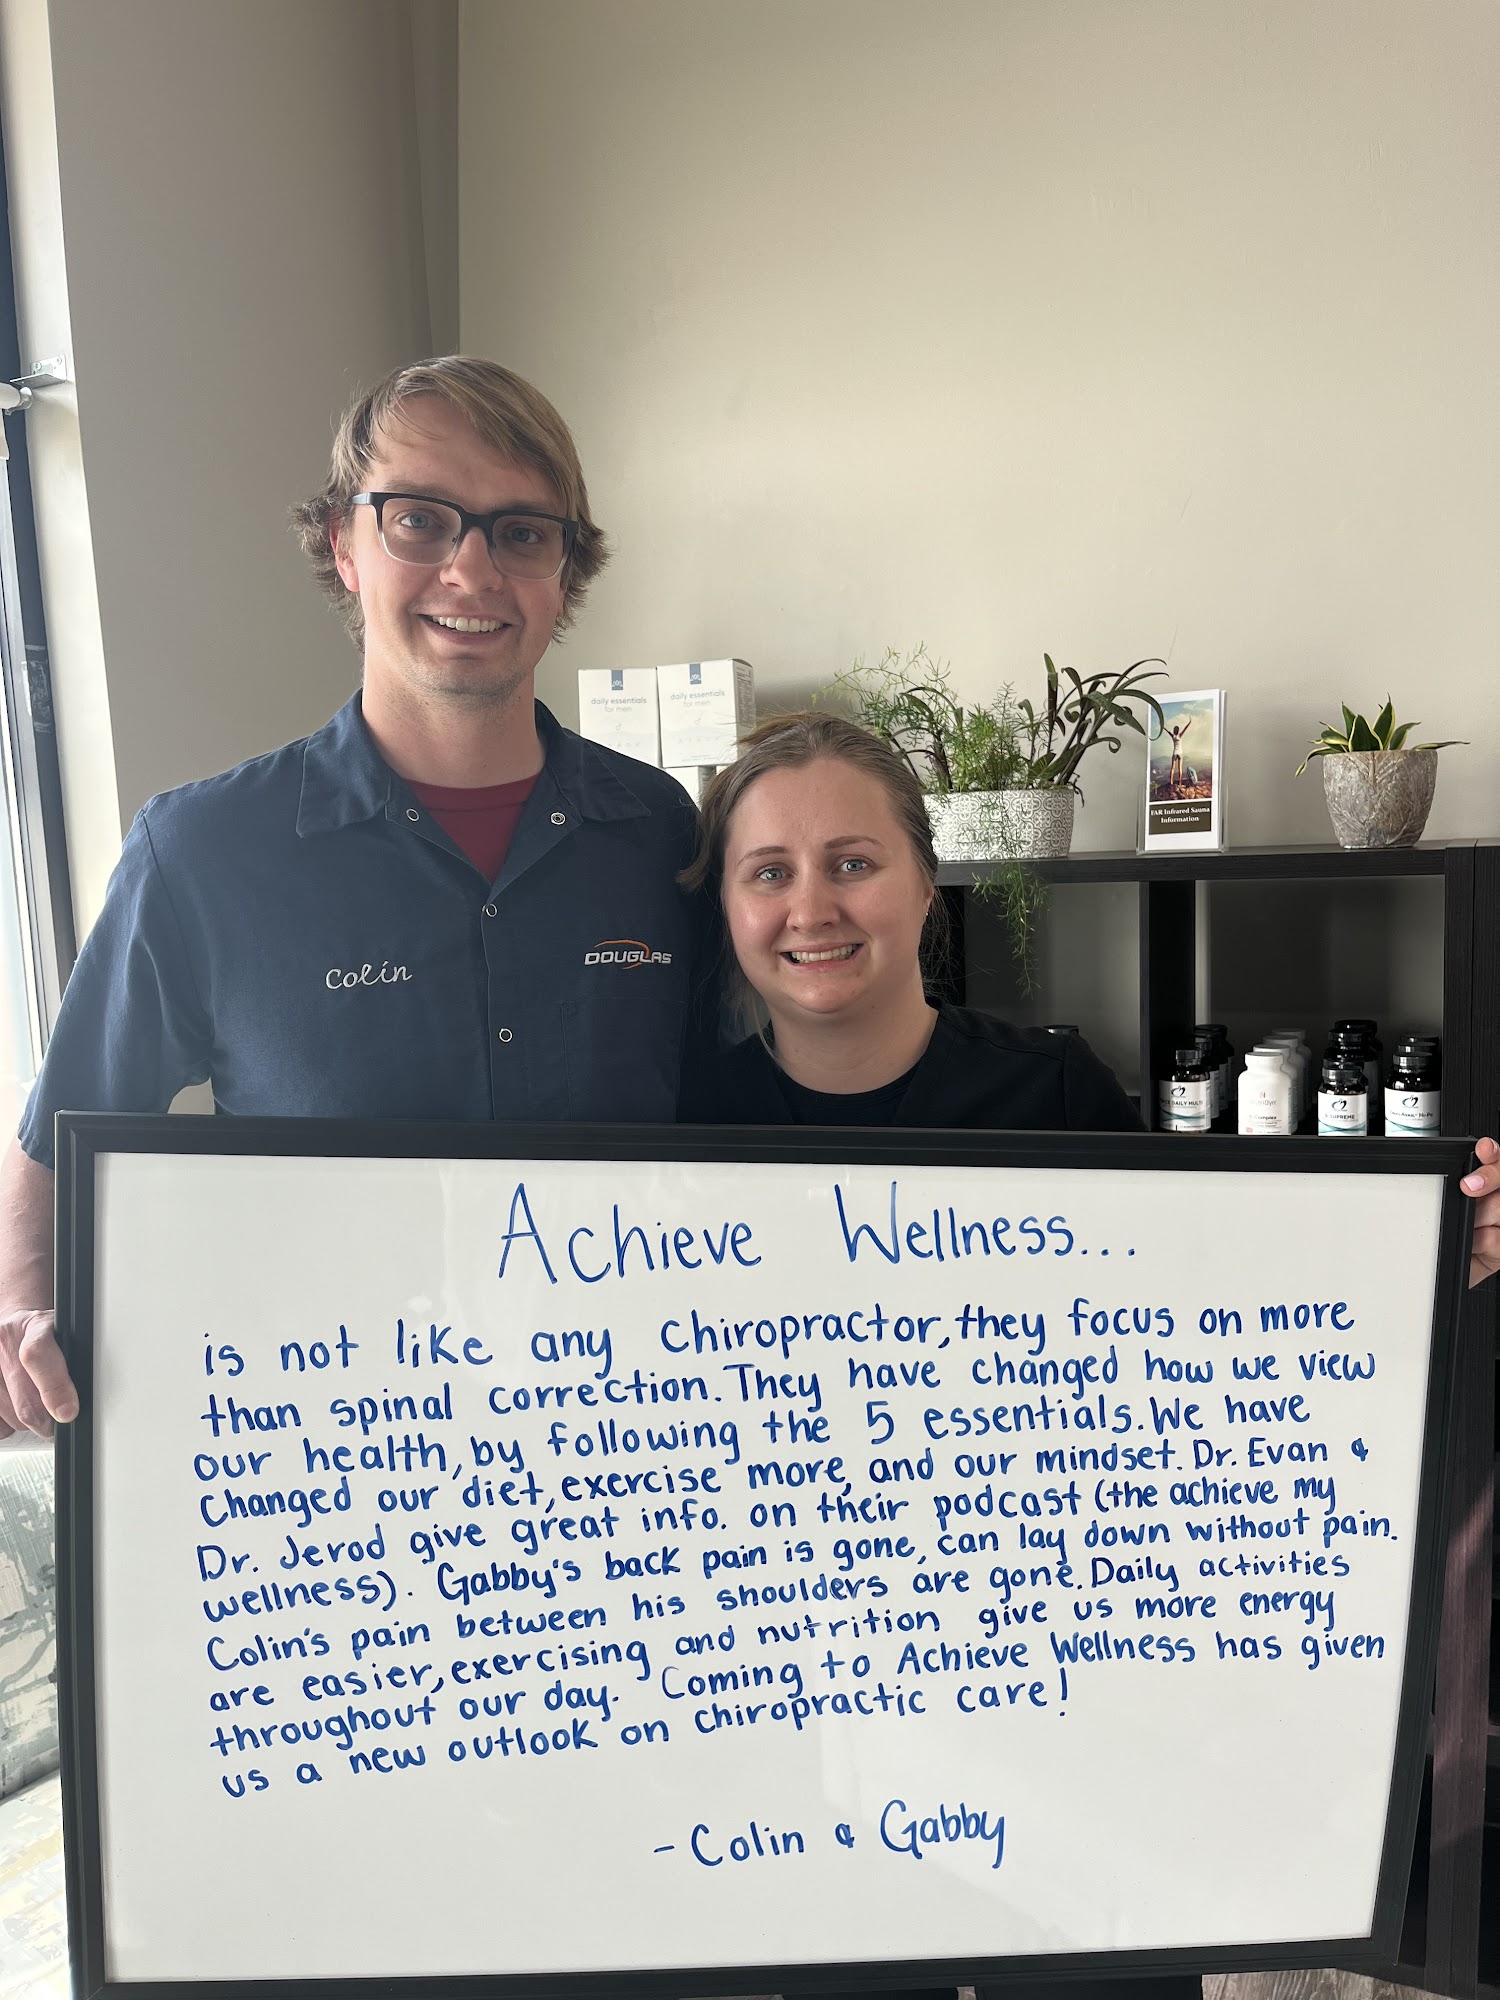 daily essentials
for men
daily essentials
for men
FAR Infrared Sauna
Information
Colin
DOUGLAS
DAILY MULTI
SUPREME
Achieve Wellness...
is not like any chiropractor, they focus on more
than spinal correction. They have changed how we view
our health, by following the 5 essentials. We have
changed our diet, exercise more, and our mindset. Dr. Evan &
Dr. Jerod give great info. on their podcast (the achieve my
wellness). Gabby's back pain is gone, can lay down without pain.
Colin's pain between his shoulders are gone. Daily activities
are easier, exercising and nutrition give us more energy
throughout our day. Coming to Achieve Wellness has given
us a new outlook on chiropractic care!
- Colin & Gabby